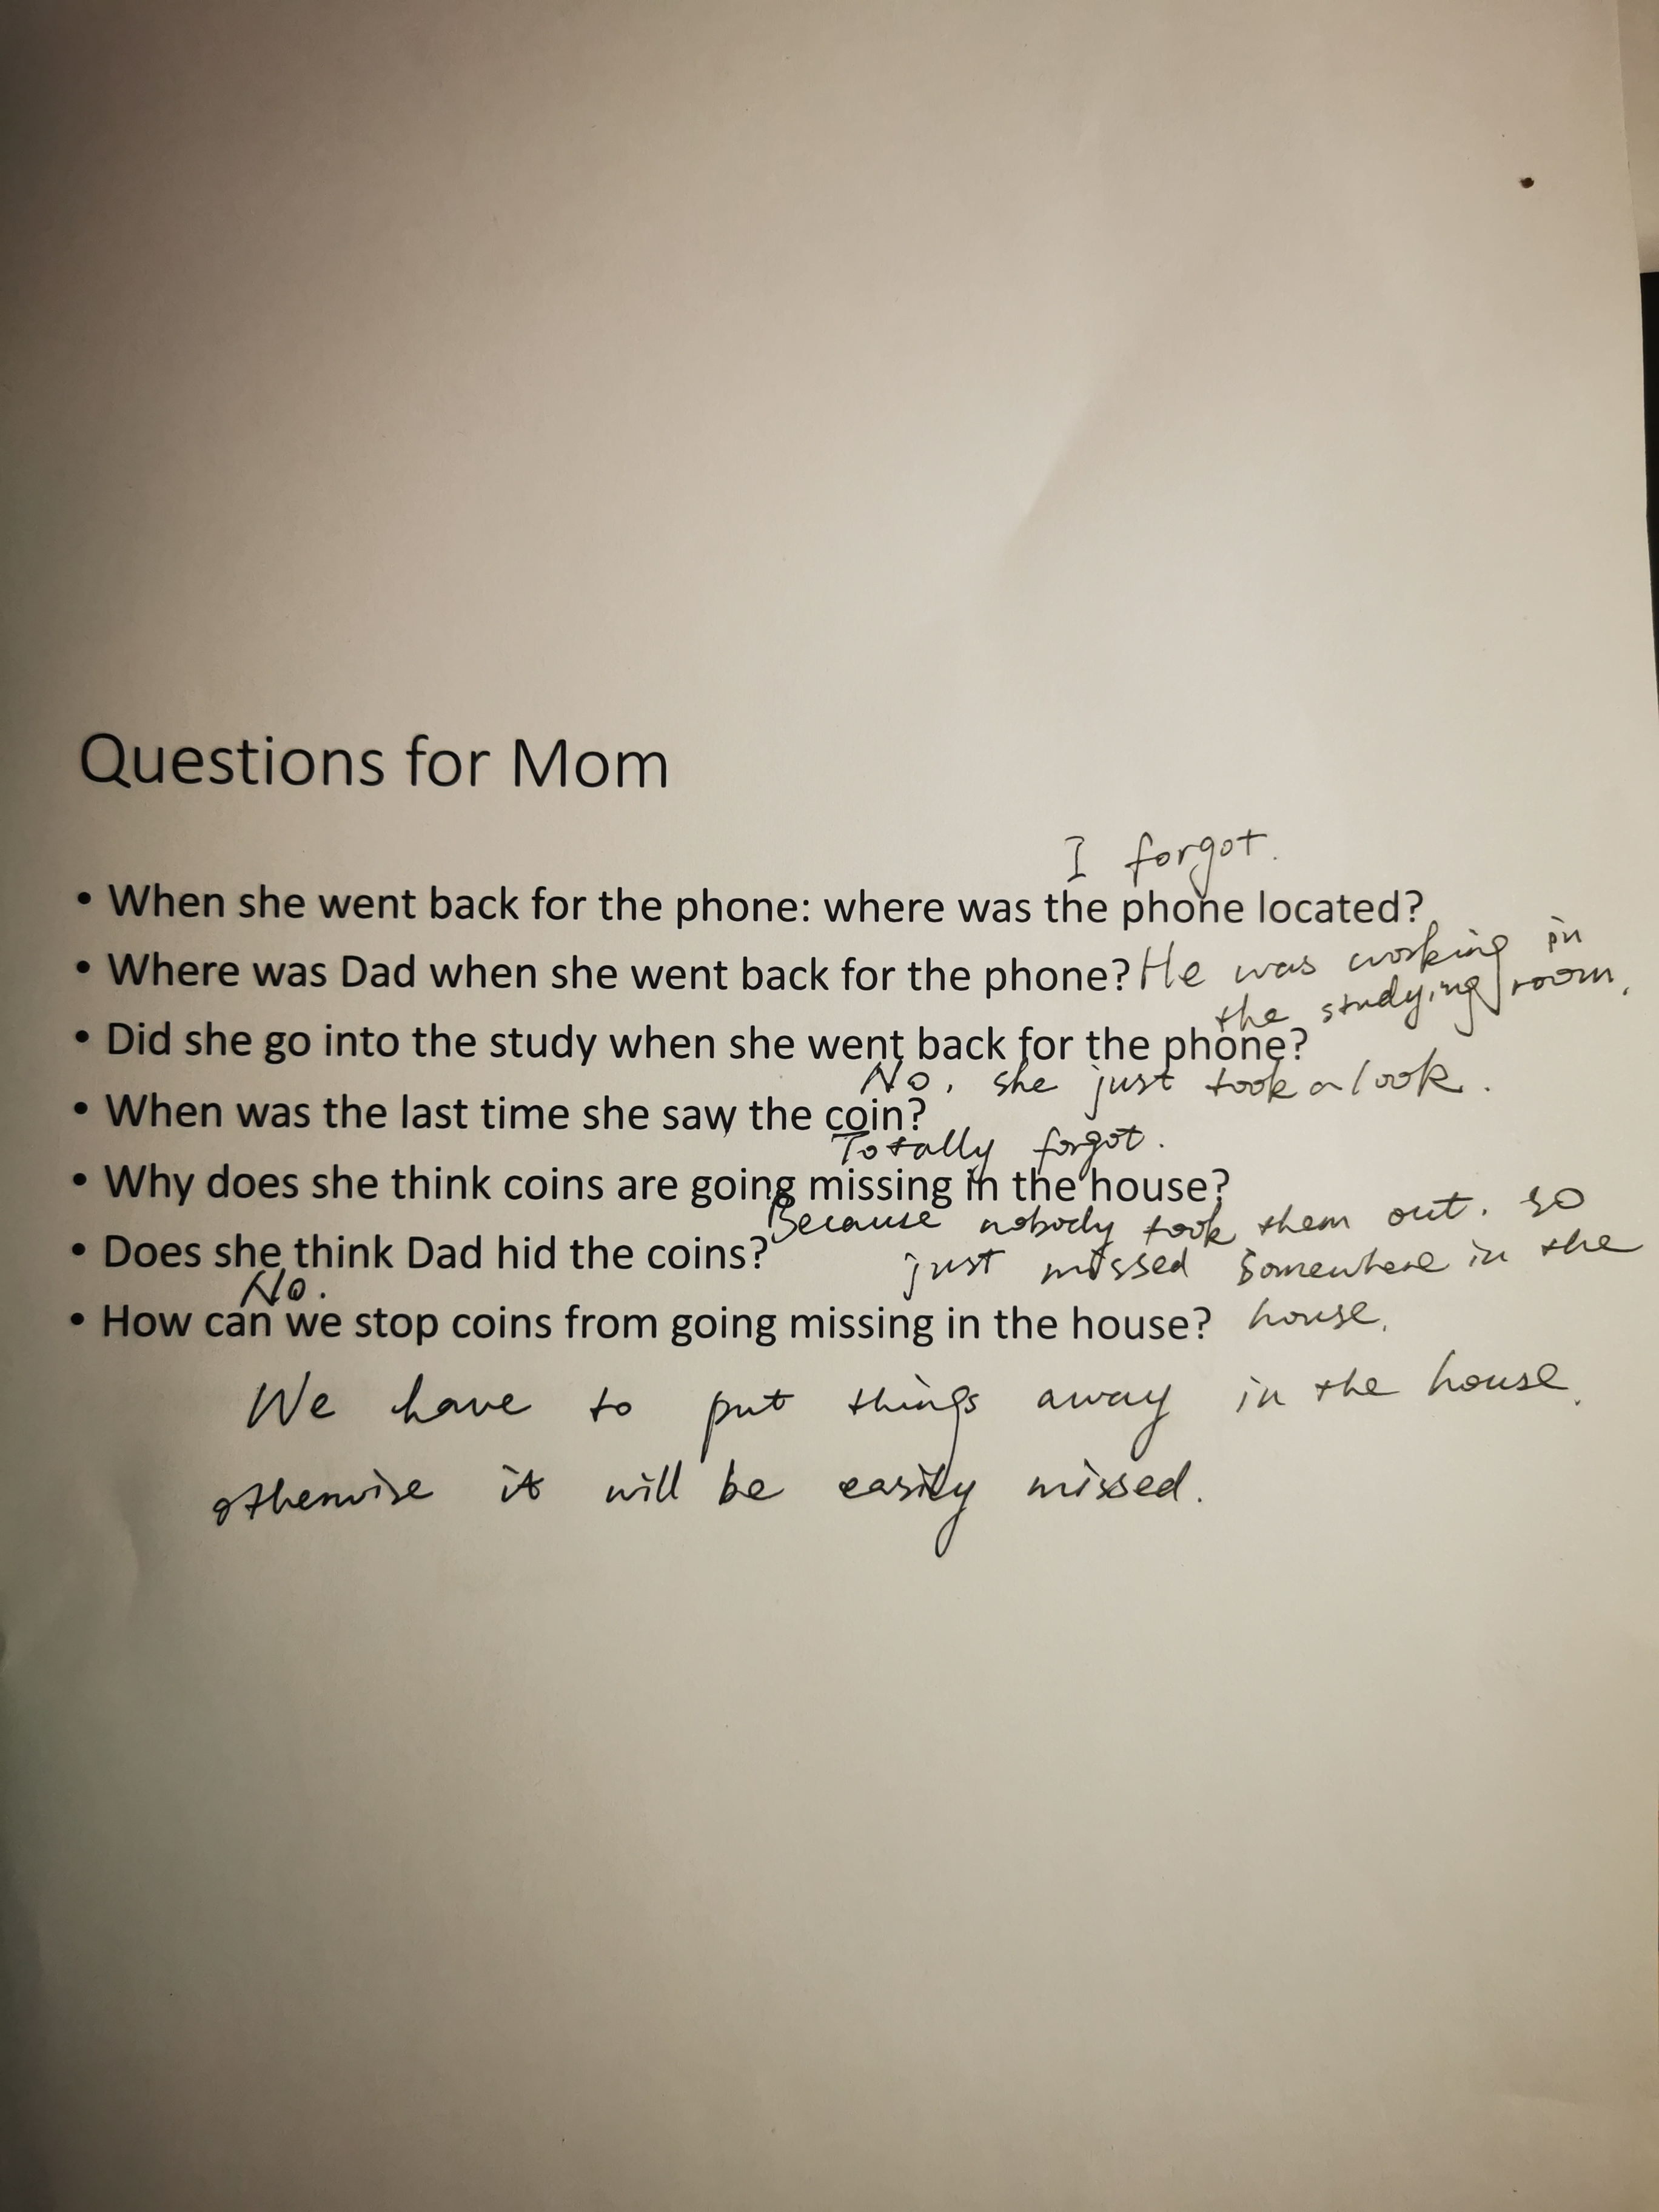 Questions for Mom
I forgot.
• When she went back for the phone: where was the phone located?
• Where was Dad when she went back for the phone? He was working in
the studying room.
• Did she go into the study when she went back for the phone?
No, she just took a look.
• When was the last time she saw the coin?
Totally forgot.
• Why does she think coins are going missing in the house?
Because nobody took them out. so
• Does she think Dad hid the coins?
just missed somewhere in the
No.
• How can we stop coins from going missing in the house? house.
We have to put things away in the house.
otherwise it will be easily missed.